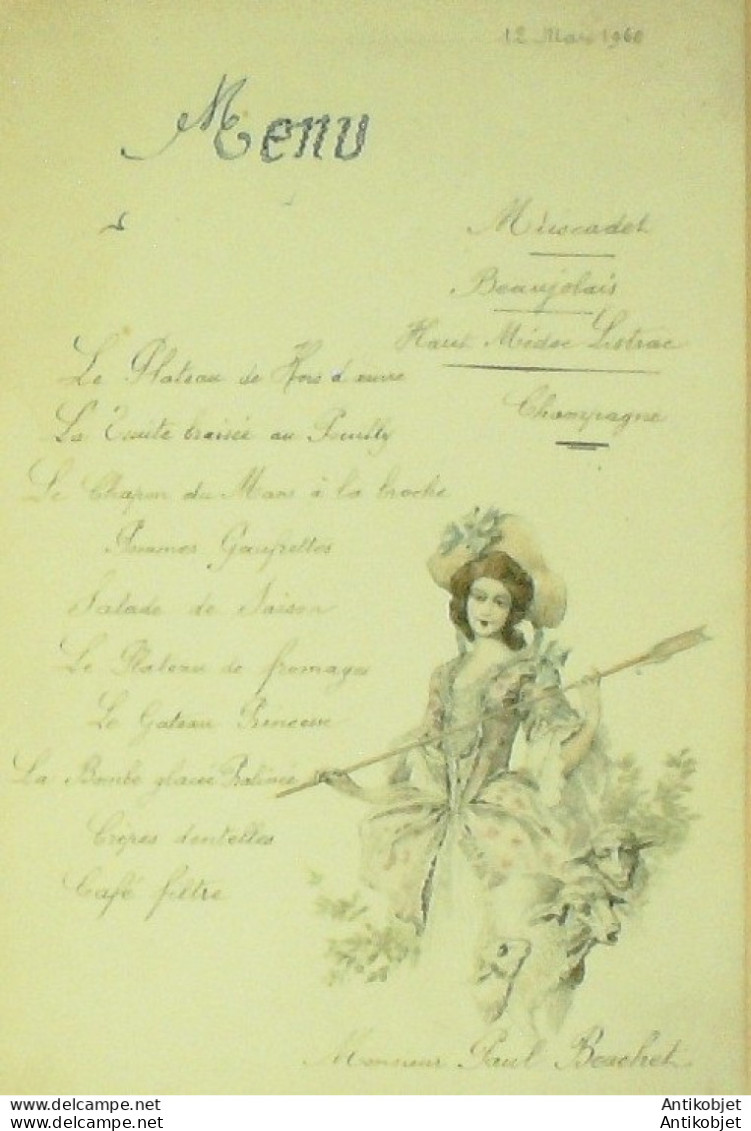 12 Mars 1960
Menu
Muscadet
Beaujolais
Haut Médoc Listrac
Champagne
Le Plateau de Hors d'œuvre
La Truite braisée au Pouilly
Le Chapon du Mans à la broche
Pommes Gaufrettes
Salade de Saison
Le Plateau de fromages
Le Gateau Princesse
La Bombe glacée Pralinée
Crêpes dentelles
Café filtre
Monsieur Paul
delcampe.net
Antikobjet
delcampe.net
Antikobjet